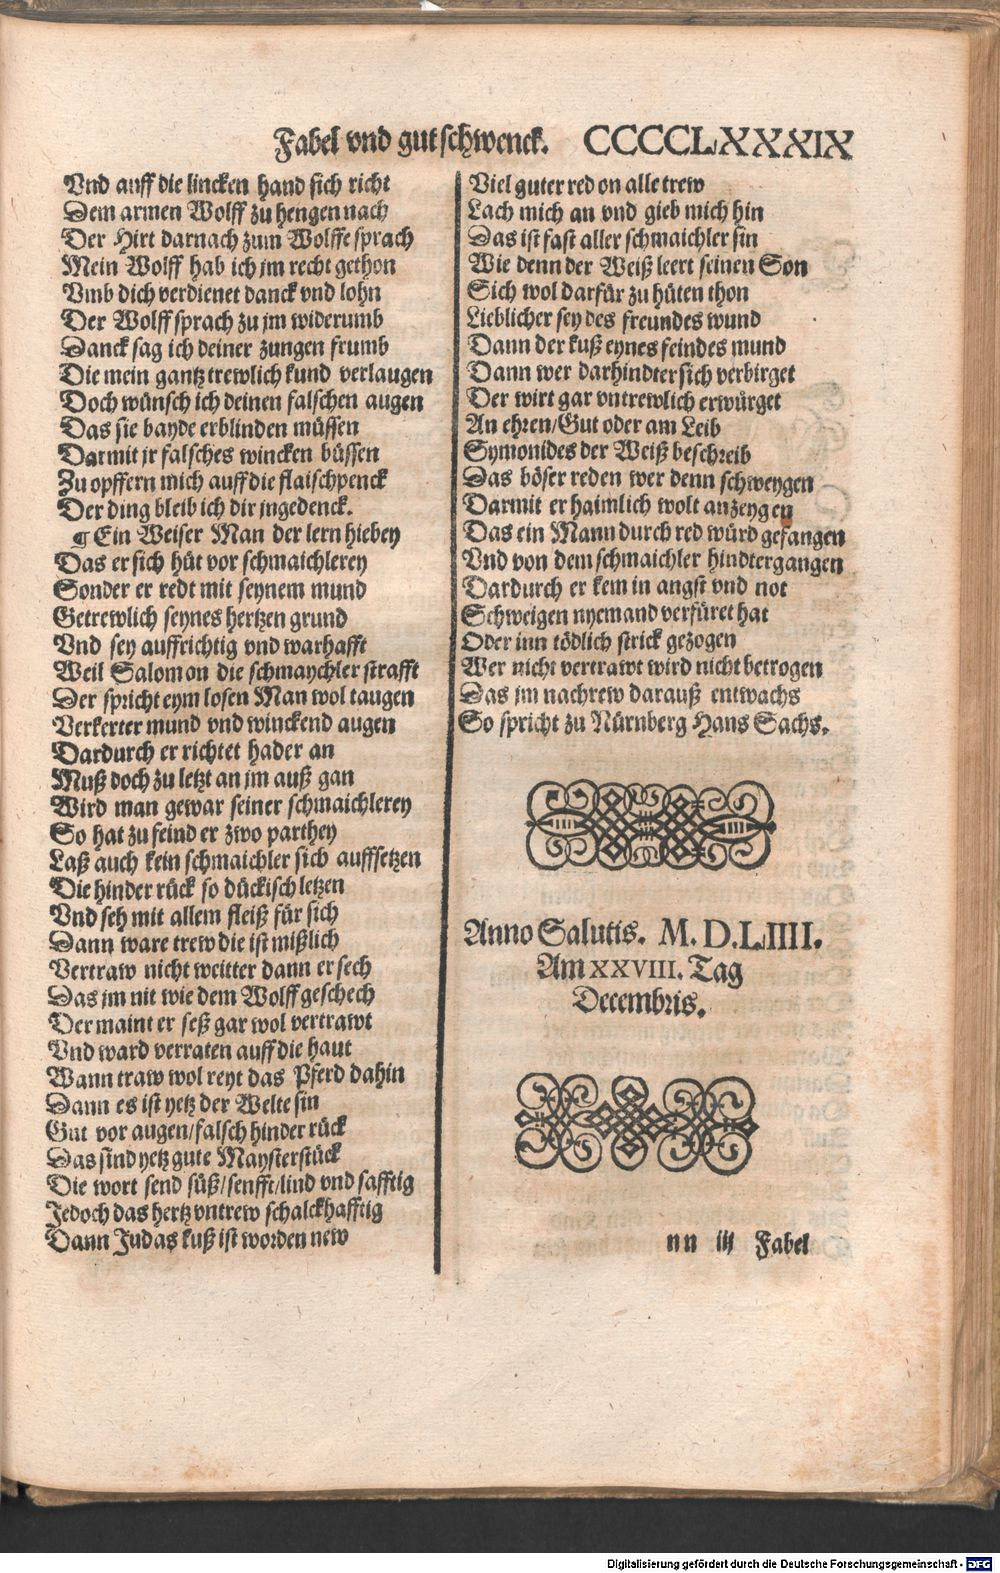 Fabel vnd gut schwenck. CCCCCLXXXIX
Vnd auff die lincken hand sich richt
Dem armen Wolff zu hengen nach
Der Hirt darnach zum Wolffe sprach
Mein Wolff hab ich jm recht gethon
Vmb dich verdienet danck vnd lohn
Der Wolff sprach zu jm widerumb
Danck sag ich deiner zungen frumb
Die mein gantz trewlich kund verlaugen
Doch wünsch ich deinen falschen augen
Das sie bayde erblinden müssen
Darmit jr falsches wincken büssen
Zu opffern mich auff die flaischpenck
Der ding bleib ich dir jngedenck.
¶ Ein Weiser Man der lern hiebey
Das er sich hüt vor schmaichlerey
Sonder er redt mit seynem mund
Getrewlich seynes hertzen grund
Vnd sey auffrichtig vnd warhafft
Weil Salomon die schmaychler strafft
Der spricht eym losen Man wol taugen
Verkerter mund vnd winckend augen
Dardurch er richtet hader an
Muß doch zu letzt an jm auß gan
Wird man gewar seiner schmaichlerey
So hat zu feind er zwo parthey
Laß auch kein schmaichler sich auffsetzen
Die hinder rück so dückisch letzen
Vnd seh mit allem fleiß für sich
Dann ware trew die ist mißlich
Vertraw nicht weitter dann er sech
Das jm nit wie dem Wolff geschech
Der maint er seß gar wol vertrawt
Vnd ward verraten auff die haut
Wann traw wol reyt das Pferd dahin
Dann es ist yetz der Welte sin
Gut vor augen/falsch hinder rück
Das sind yetz gute Maysterstück
Die wort send süß/senfft/lind vnd safftig
Jedoch das hertz vntrew schalckhafftig
Dann Judas kuß ist worden new
Viel guter red on alle trew
Lach mich an vnd gieb mich hin
Das ist fast aller schmaichler sin
Wie denn der Weiß leert seinen Son
Sich wol darfür zu hüten thon
Lieblicher sey des freundes wund
Dann der kuß eynes feindes mund
Dann wer darhindter sich verbirget
Der wirt gar vntrewlich erwürget
An ehren/Gut oder am Leib
Symonides der Weiß beschreib
Das böser reden wer denn schweygen
Darmit er haimlich wolt anzeygen
Das ein Mann durch red würd gefangen
Vnd von dem schmaichler hindtergangen
Dardurch er kem in angst vnd not
Schweigen nyemand verfüret hat
Oder inn tödlich strick gezogen
Wer nicht vertrawt wird nicht betrogen
Das jm nachrew darauß entwachs
So spricht zu Nürnberg Hans Sachs.
Anno Salutis. M. D. LIIII.
Am XXVIII. Tag
Decembris.
nn iij Fabel
Digitalisierung gefördert durch die Deutsche Forschungsgemeinschaft - DFG